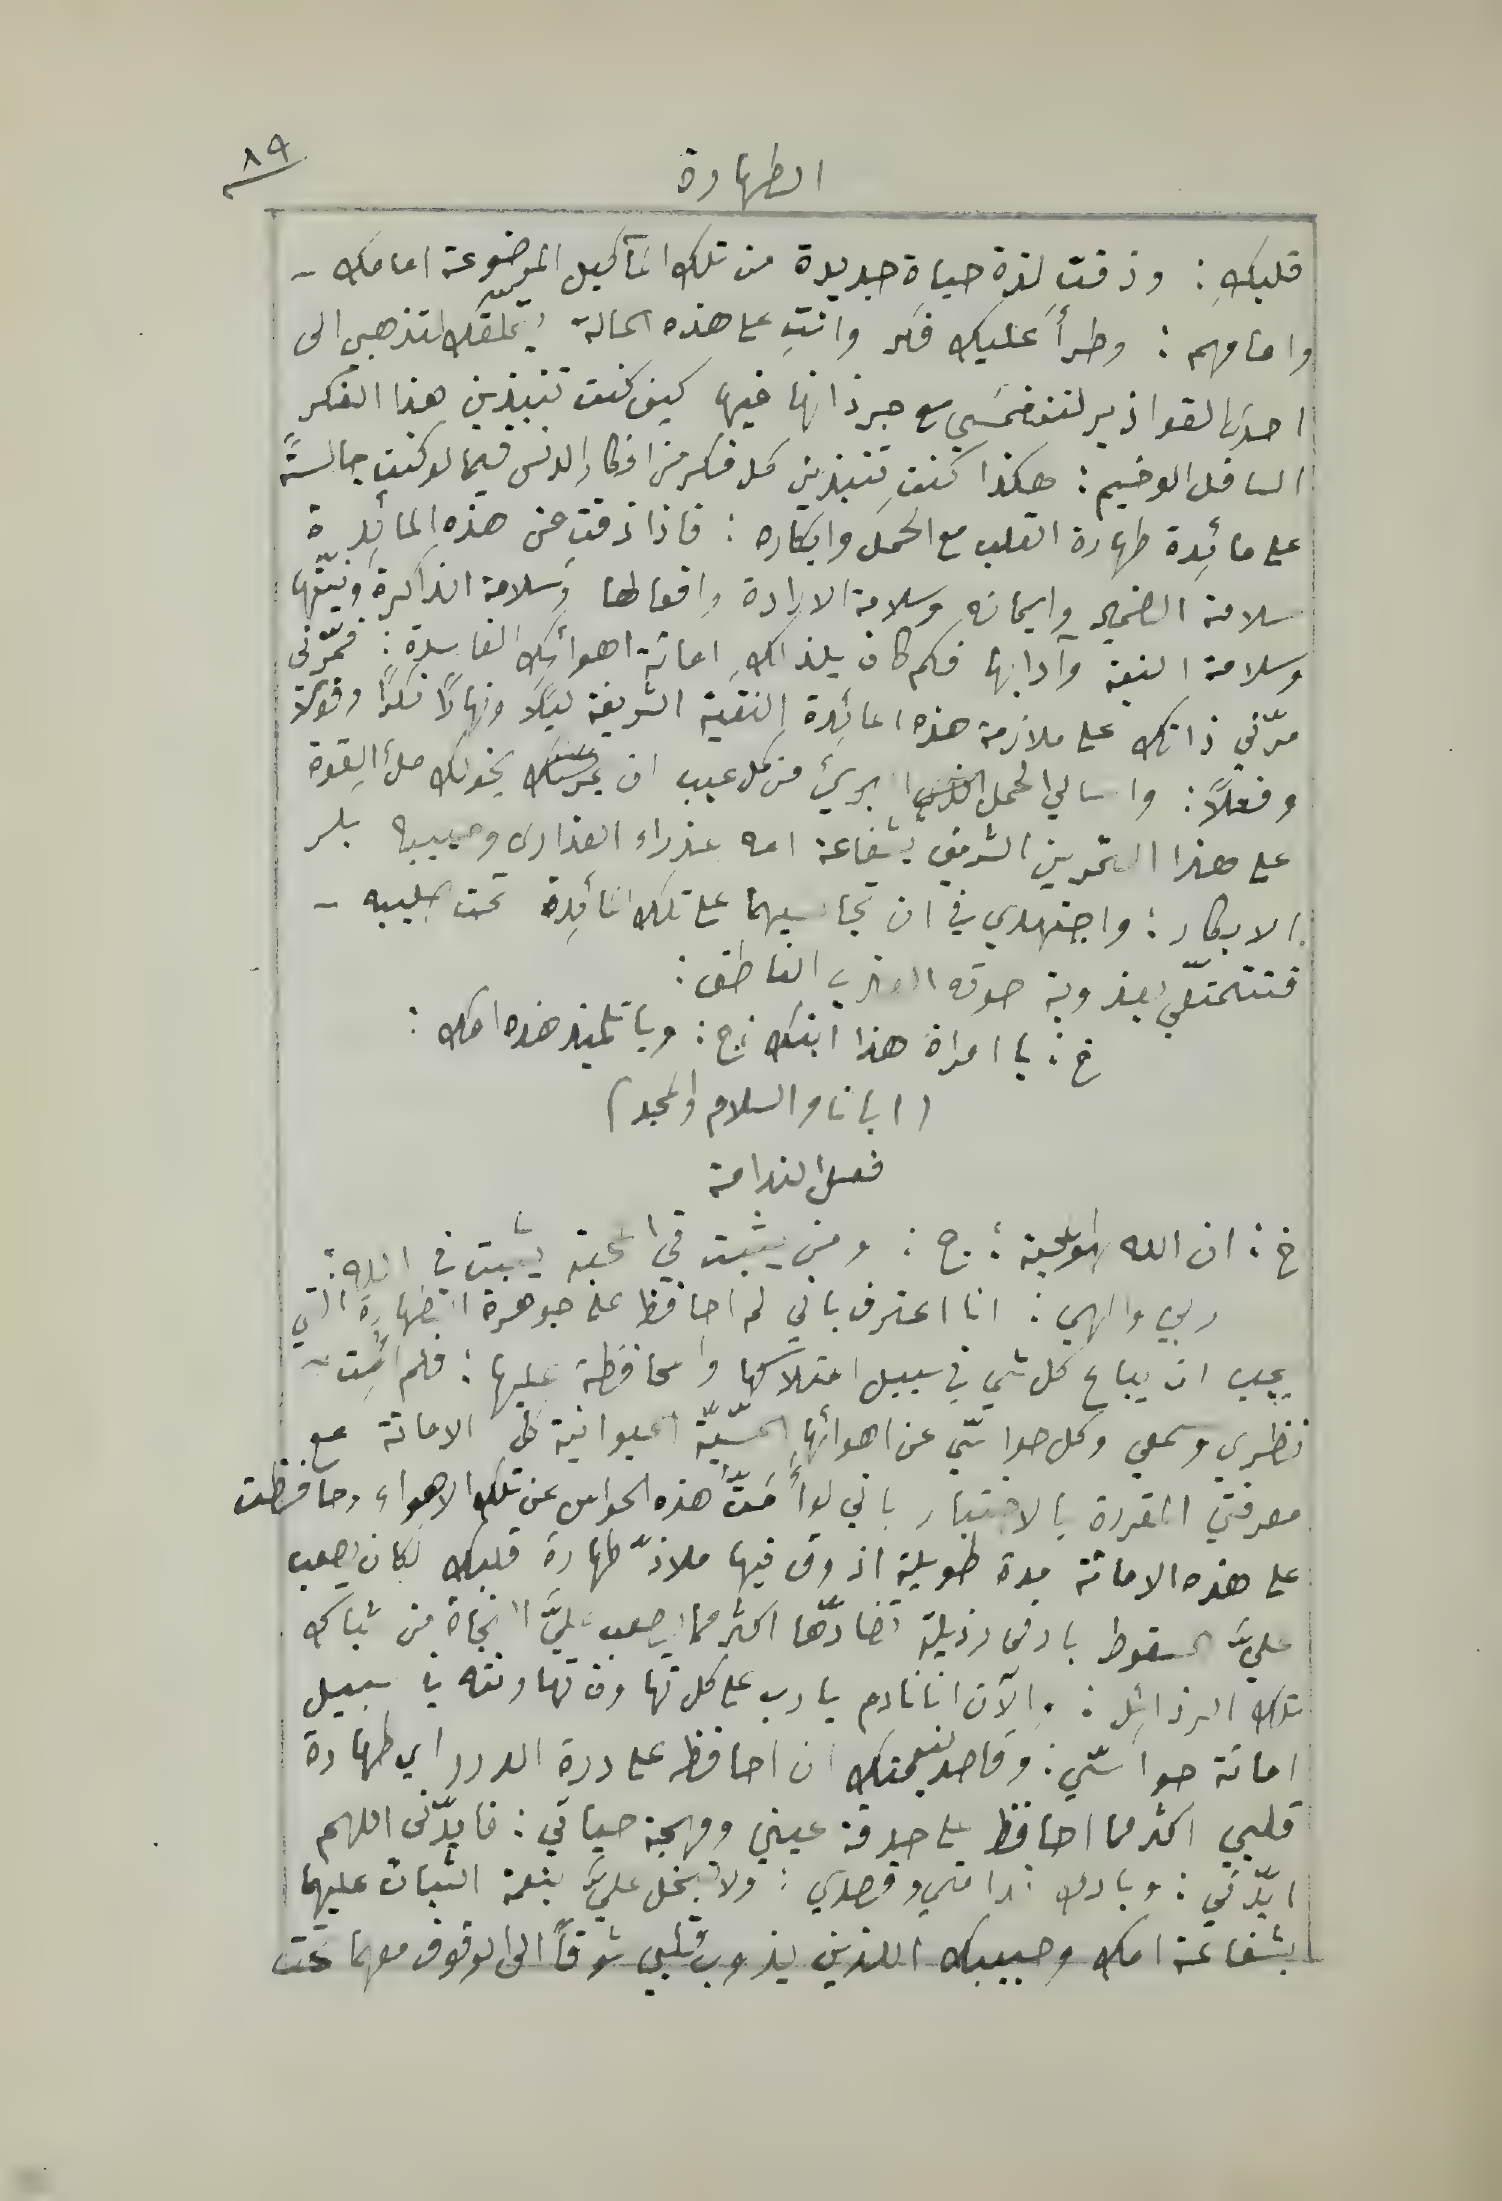 ٨٩
الطهارة
قلبكِ : وذقتِ لذة حياة جديدة من تلك المآكيل الموضوعة امامك -
وامامهم : وطرأ عليك فكر وانتِ على هذه الحالة لتذهبي الى
احدى القواذير لتنغمسي مع جرذانها فيها كيف كنت تنبذين هذا الفكر
السافل الوخيم : هكذا كنتِ تنبذين كل فكر من افكار الدنس فيما لو كنتِ جالسةً
على مائدة طهارة القلب مع الحمل وابكاره : فاذا ذقتِ من هذه المائدة
سلامة الضمير وايمانه وسلامة الارادة وافعالها وسلامة الذاكرة ونيّتها
وسلامة النية وآدابها فكم كان يلذ لكِ اماتة اهوائكِ الفاسدة : فمرّني
مرّني ذاتك على ملازمة هذه المائدة النقية الشريفة ليلاً ونهارًا فكرًا وقولاً
وفعلاً : واسالي الحمل البريئ من كل عيب ان يخولك ملأ القوة
على هذا التمرين الشريف بشفاعة امه عذراء العذارى وحبيبه بكر
الابكار : واجتهدي في ان تجالسيهما على تلك المائدة تحت صليبه -
فتتمتّعي بعذوبة صوته العذب الناطق :
خ : يا امراة هذا ابنك : ج : ويا تلميذ هذه امك :
(ابانا والسلام والمجد)
فعل الندامة
خ : ان الله لهو محبة : ج : ومن يثبت في المحبة يثبت في الله :
ربي والهي : انا اعترف باني لم احافظ على جوهرة الطهارة التي
يجب ان يباع كل شي في سبيل امتلاكها والمحافظة عليها : فلم اُمِت -
نظري وسمعي وكل حواسّي عن اهوائها الحسّيّة الحيوانية كل الاماتة مع
معرفتي المقررة بالاختبار باني لو أَمَتُّ هذه الحواس عن تلك الاهواء وحافظت
على هذه الاماتة مدة طويلة اذوق فيها ملاذّ طهارة قلبك لكان يصعب
عليَّ السقوط بادنى رذيلة تضادّها اكثر مما يصعب عليَّ النجاة من شباك
تلك الرذائل : والآن انا نادم يا رب على كل تهاون تهاونته في سبيل
اماتة حواسّي : وقاصد بنعمتك ان احافظ على درة الدرر اي طهارة
قلبي اكثر مما احافظ على حدقة عيني ومهجة حياتي : فايدّني اللهم
ايّدني : وبارك ندامتي وقصدي : ولا تبخل عليَّ بنعمة الثبات عليهما
بشفاعة امك وحبيبك اللذين يذوب قلبي شوقاً الى الوقوف معهما تحت